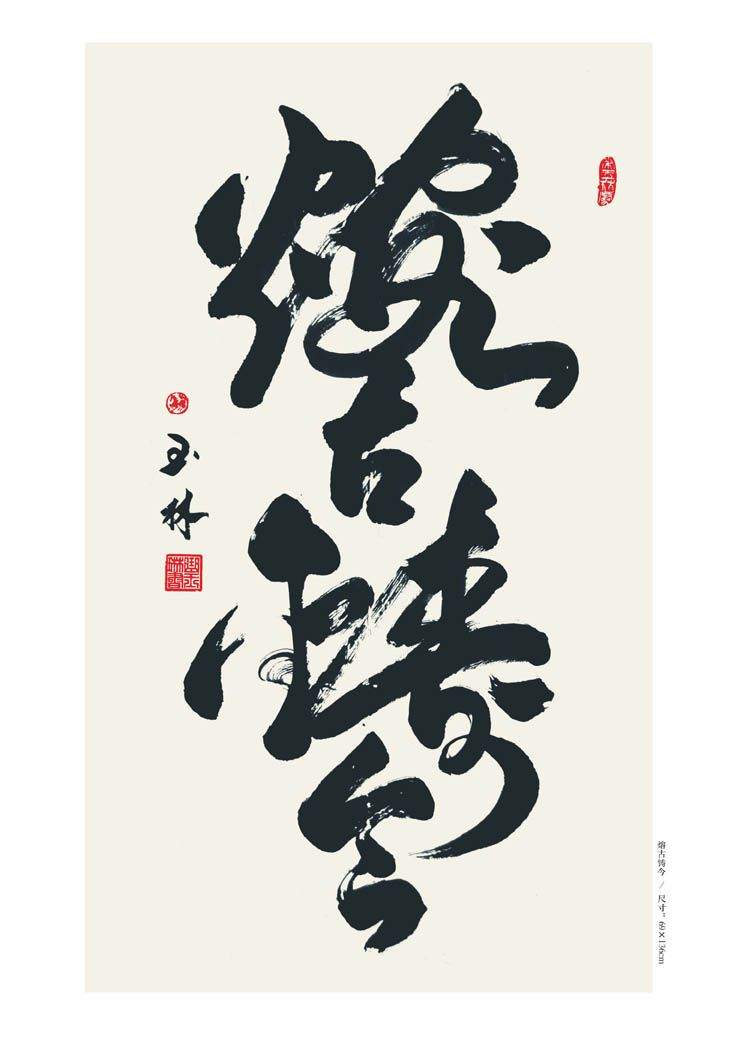 熔古铸今
玉林
熔古铸今 / 尺寸：69×136cm